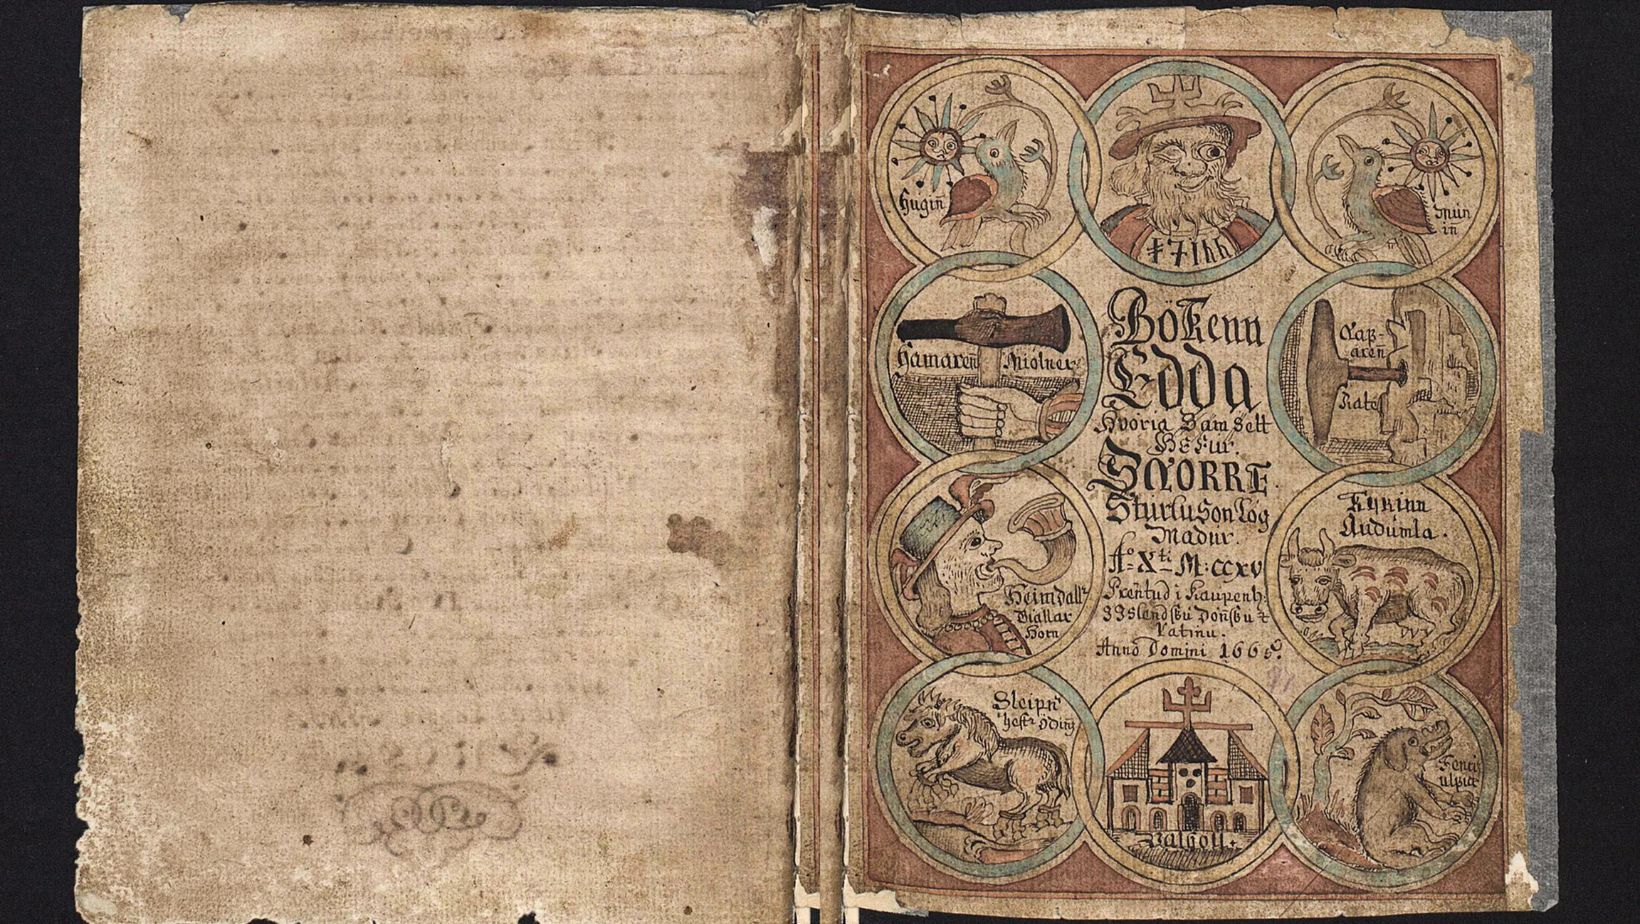 Hugin̄
Mun
in̄
Hamaren̄ Miolner
Bökenn
Edda
Hvoria Sam Sett
Hefur.
SNORRE
Sturlu Son Lög
Madur.
Aº Xti M:ccxv
Prentud i Kaupenh.
Islendsku Donsku &
Latinu.
Anno Domini 1665.
Rate
Heimdallr
Giallar
Horn
Kyrinn
Audumla.
Sleipnr
hestr Oding
Valholl